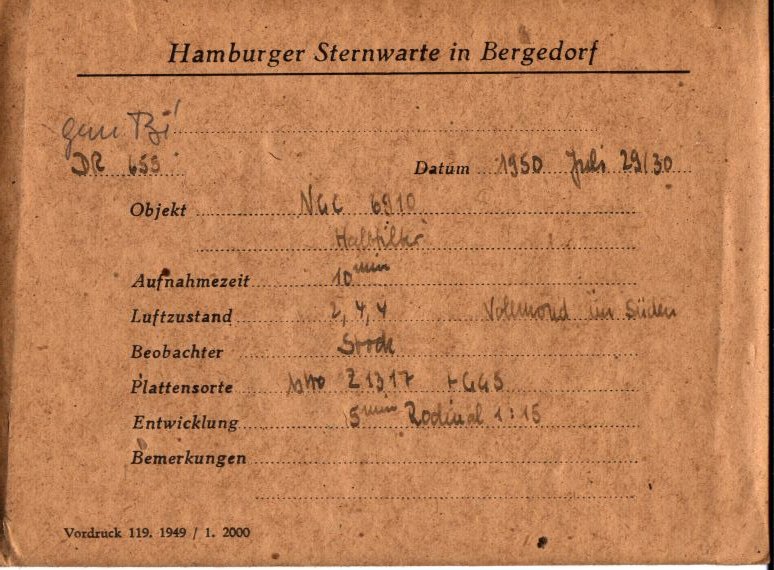 Hamburger Sternwarte in Bergedorf
DR 659 Datum 1950 Juli 29/30
Objekt NGC 6910
Halbfilter
Aufnahmezeit 10 min
Luftzustand 2, 4, 4 Vollmond im Süden
Beobachter Stock
Plattensorte Z1317 + GG5
Entwicklung 5 min Rodinal 1:15
Bemerkungen
Vordruck 119. 1949 / 1. 2000